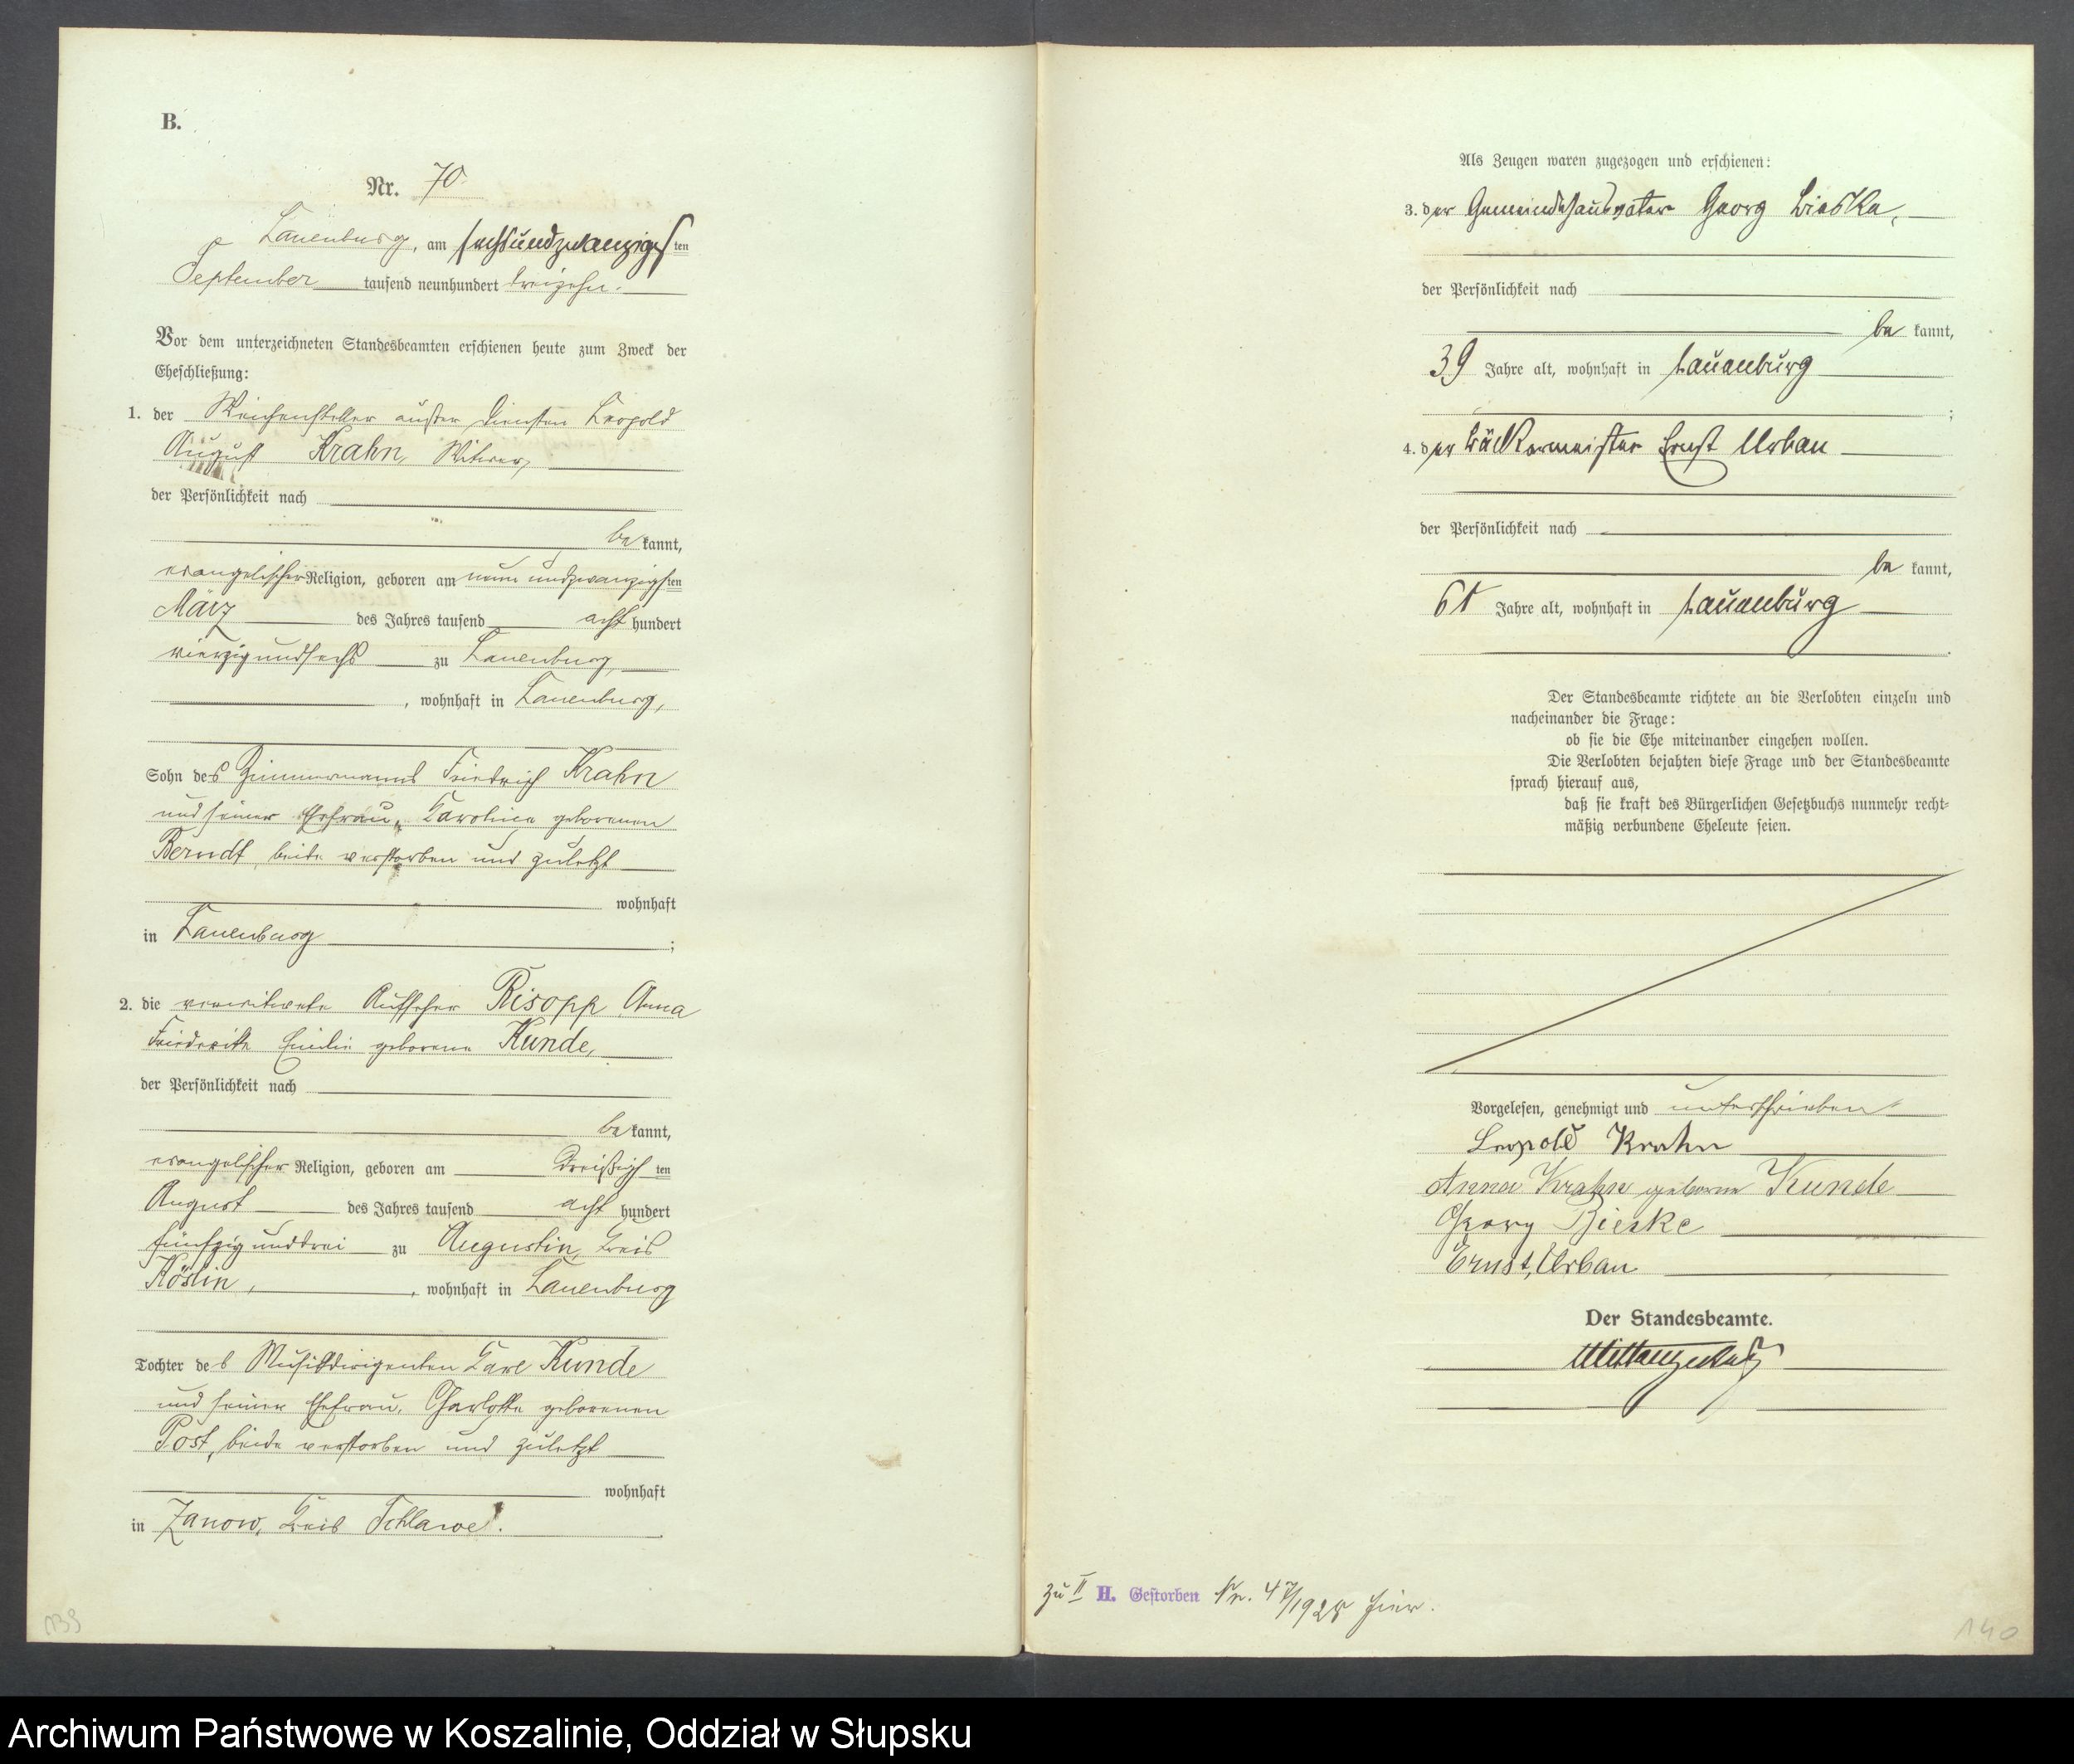 B.
Nr. 70
Lauenburg, am sechsundzwanzigsten
September tausend neunhundert dreizehn.
Vor dem unterzeichneten Standesbeamten erschienen heute zum Zweck der
Eheschließung:
1. der Weichensteller außer Diensten Leopold
August Krahn, Witwer,
der Persönlichkeit nach
be kannt,
evangelischer Religion, geboren am neun und zwanzigsten
März des Jahres tausend acht hundert
vierzig und sechs zu Lauenburg,
, wohnhaft in Lauenburg,
Sohn des Zimmermanns Friedrich Krahn
und seiner Ehefrau, Karoline geborenen
Berndt, beide verstorben und zuletzt
wohnhaft
in Lauenburg ;
2. die verwitwete Aufseher Risopp Anna
Friederike Emilie geborene Kunde,
der Persönlichkeit nach
be kannt,
evangelischer Religion, geboren am dreißigsten
August des Jahres tausend acht hundert
fünfzig und drei zu Augustin, Kreis
Köslin, , wohnhaft in Lauenburg
Tochter des Musikdirigenten Karl Kunde
und seiner Ehefrau, Charlotte geborenen
Post, beide verstorben und zuletzt
wohnhaft
in Zanow, Kreis Schlawe.
139
Als Zeugen waren zugezogen und erschienen:
3. der Gemeindehausvater Georg Bieske,
der Persönlichkeit nach
be kannt,
39 Jahre alt, wohnhaft in Lauenburg
;
4. der Bäckermeister Ernst Urban
der Persönlichkeit nach
be kannt,
61 Jahre alt, wohnhaft in Lauenburg
.
Der Standesbeamte richtete an die Verlobten einzeln und
nacheinander die Frage:
ob sie die Ehe miteinander eingehen wollen.
Die Verlobten bejahten diese Frage und der Standesbeamte
sprach hierauf aus,
daß sie kraft des Bürgerlichen Gesetzbuchs nunmehr recht-
mäßig verbundene Eheleute seien.
Vorgelesen, genehmigt und unterschrieben
Leopold Krahn
Anna Krahn geborne Kunde
Georg Bieske
Ernst Urban
Der Standesbeamte.
zu II H. Gestorben Nr. 47/1928 hier.
140
Archiwum Państwowe w Koszalinie, Oddział w Słupsku